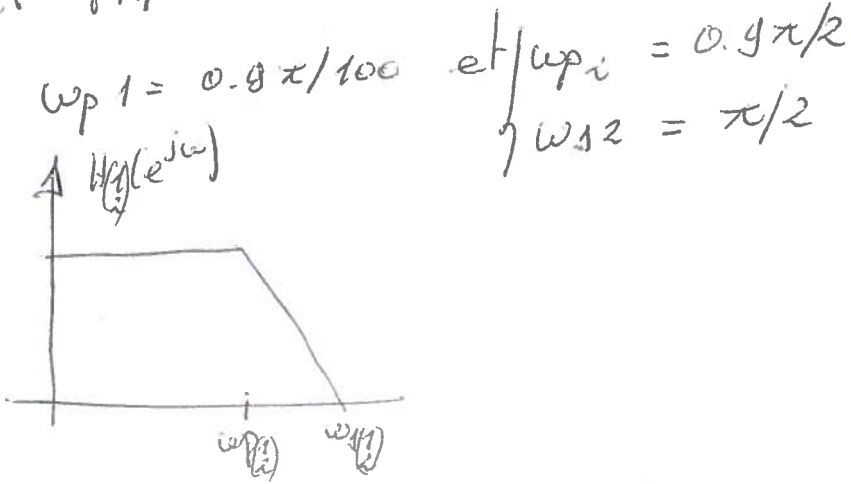 ωp 1 = 0.9 π/100 et ωp i = 0.9 π/2
ωs 2 = π/2
H(1/i)(e^jω)
ωp(1/i) ωs(1/i)